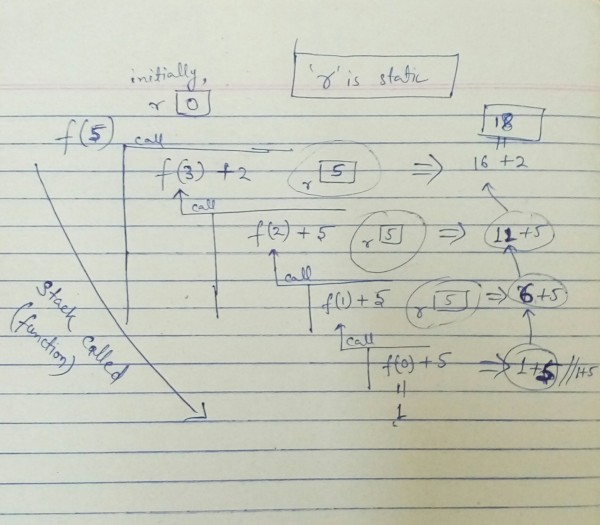 initially,
r 0
'r' is static
f(5)
call
18
||
f(3) + 2
r 5
⇒ 16 + 2
call
f(2) + 5
r 5
⇒ 11 + 5
call
f(1) + 5
r 5
⇒ 6 + 5
call
f(0) + 5
⇒ 1 + 5 // 1+5
||
1
Stack Called
(function)